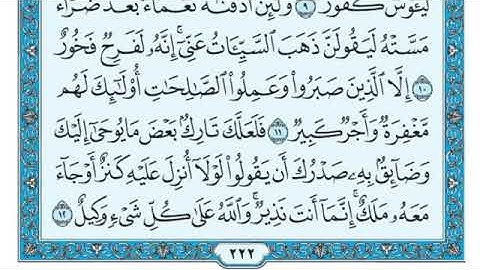 لَيَـُٔوسٌ كَفُورٌ ۝٩ وَلَئِنْ أَذَقْنَٰهُ نَعْمَآءَ بَعْدَ ضَرَّآءَ
مَسَّتْهُ لَيَقُولَنَّ ذَهَبَ ٱلسَّيِّـَٔاتُ عَنِّىٓ ۚ إِنَّهُۥ لَفَرِحٌ فَخُورٌ
۝١٠ إِلَّا ٱلَّذِينَ صَبَرُوا۟ وَعَمِلُوا۟ ٱلصَّٰلِحَٰتِ أُو۟لَٰٓئِكَ لَهُم
مَّغْفِرَةٌ وَأَجْرٌ كَبِيرٌ ۝١١ فَلَعَلَّكَ تَارِكٌۢ بَعْضَ مَا يُوحَىٰٓ إِلَيْكَ
وَضَآئِقٌۢ بِهِۦ صَدْرُكَ أَن يَقُولُوا۟ لَوْلَآ أُنزِلَ عَلَيْهِ كَنزٌ أَوْ جَآءَ
مَعَهُۥ مَلَكٌ ۚ إِنَّمَآ أَنتَ نَذِيرٌ ۚ وَٱللَّهُ عَلَىٰ كُلِّ شَىْءٍ وَكِيلٌ ۝١٢
٢٢٢